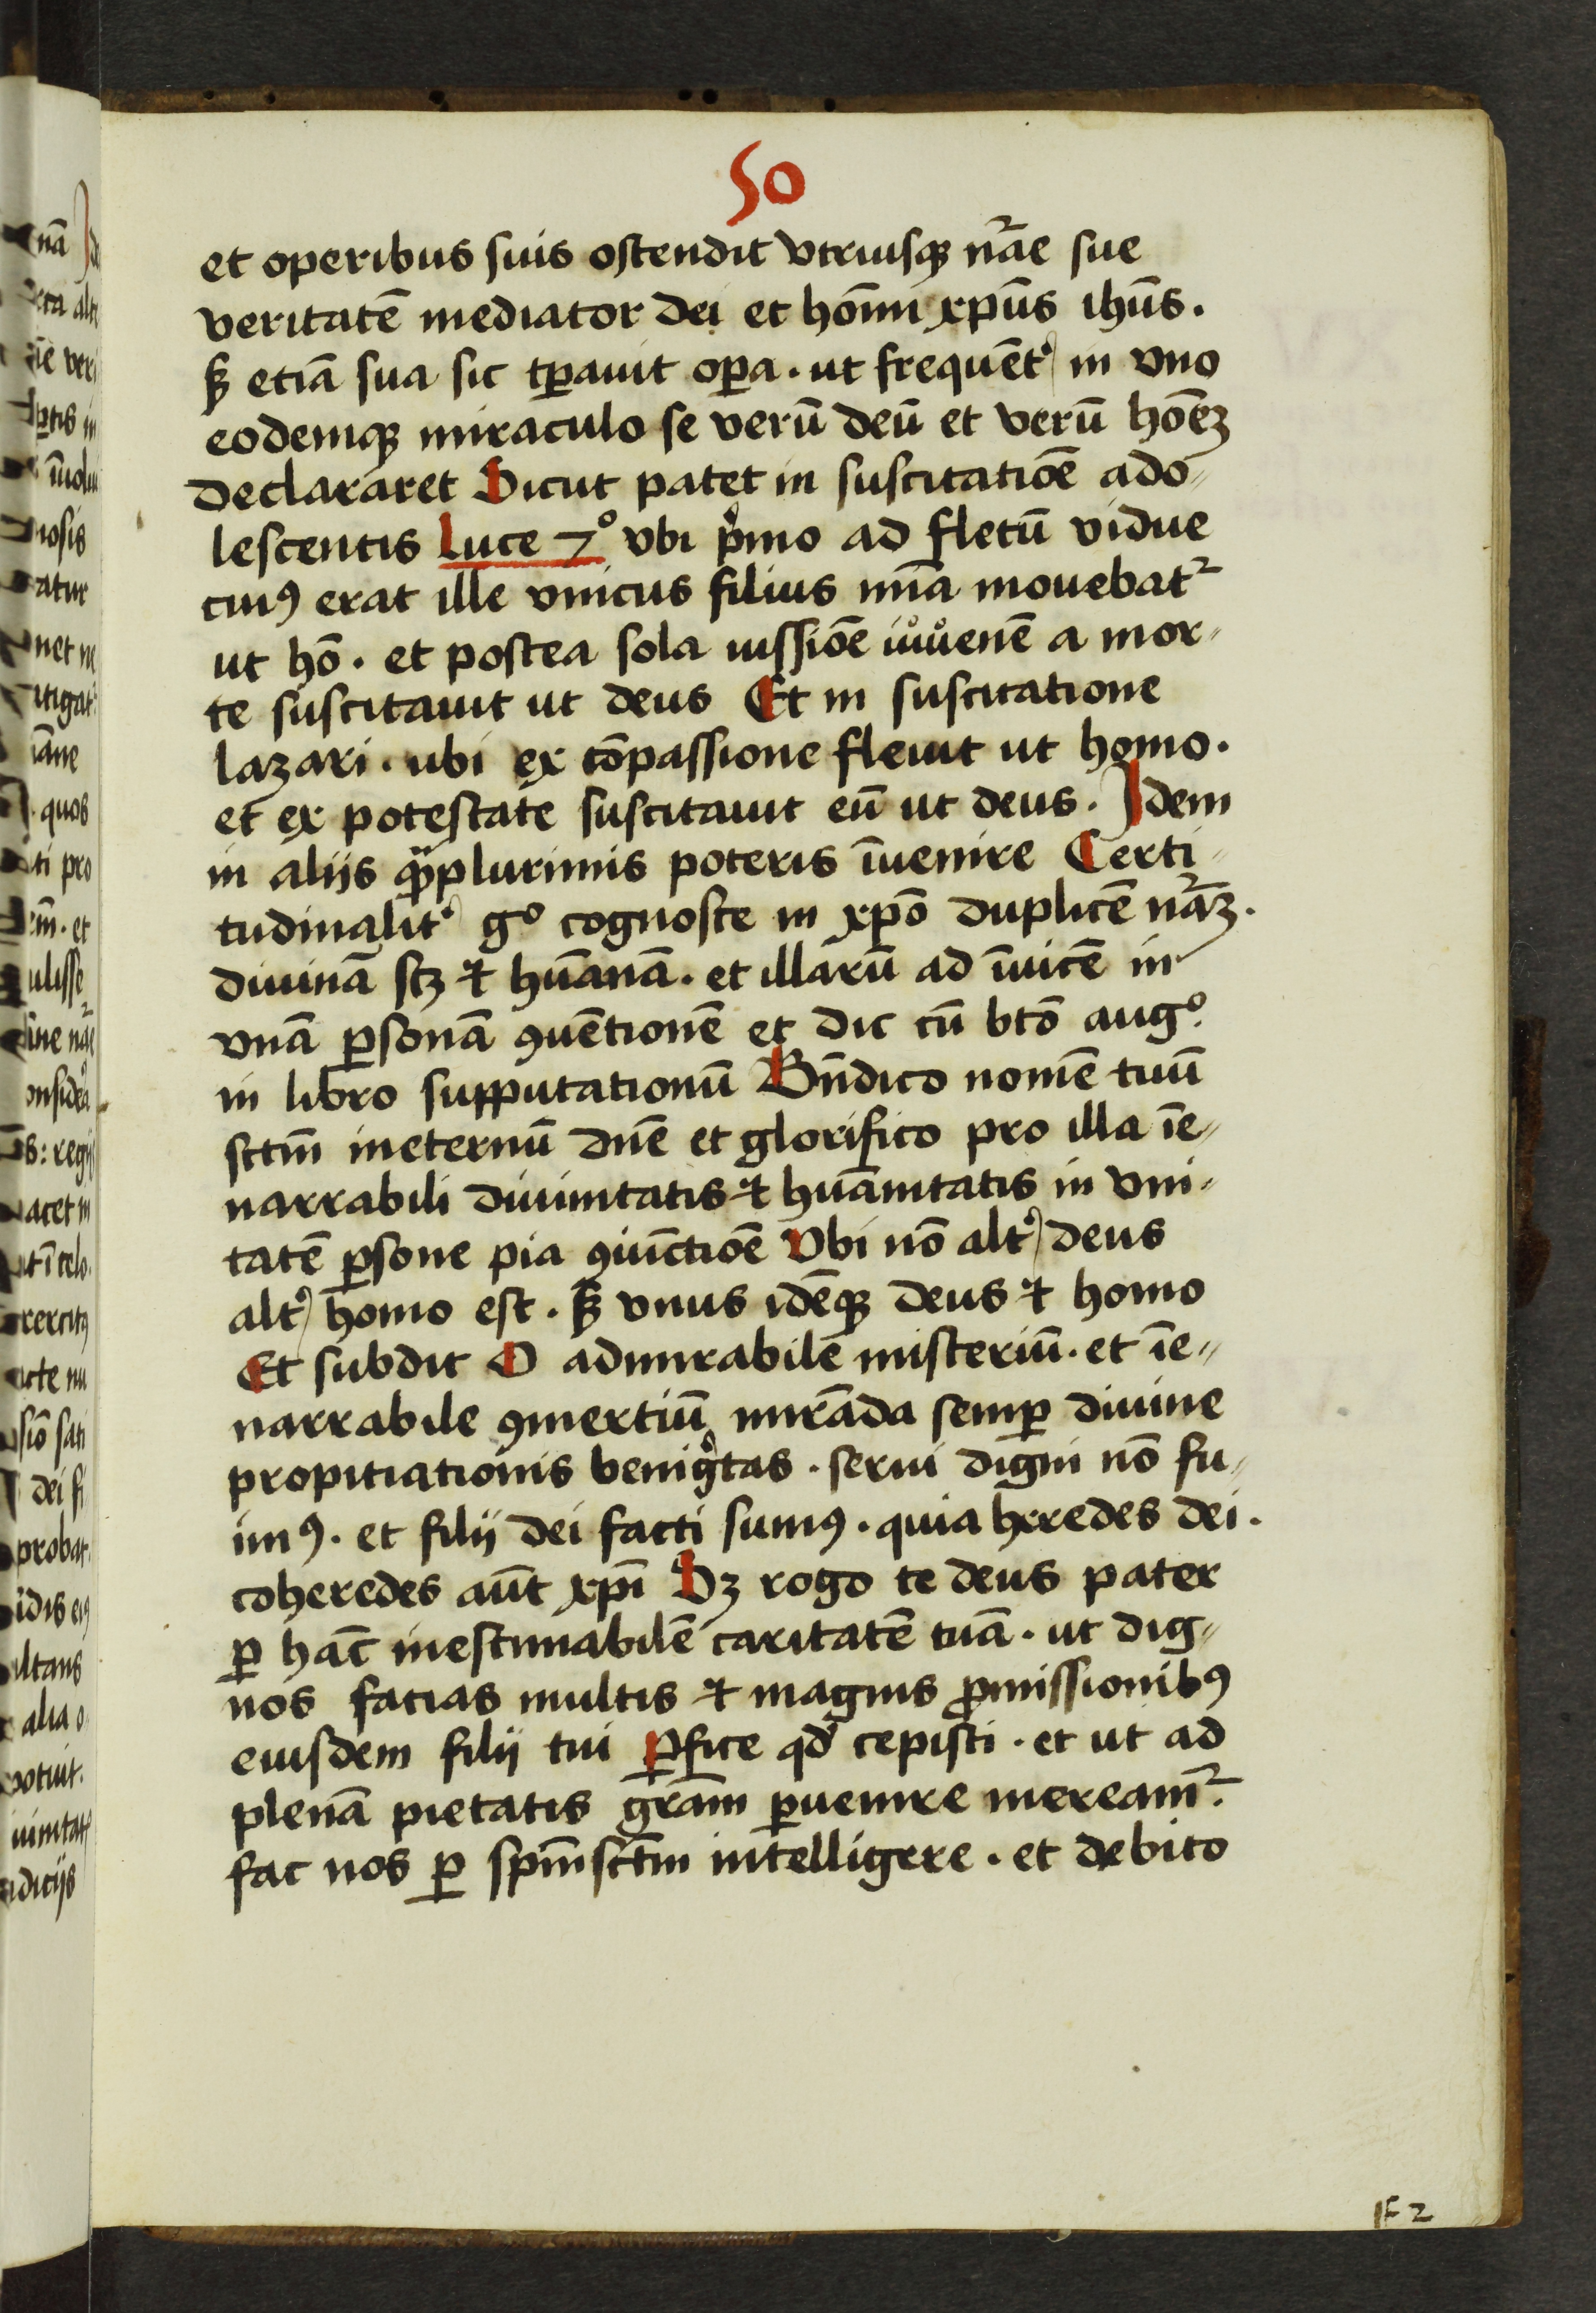 50
et operibus suis ostendit vtriusqꝫ nr̄ae sue
veritatē mediator dei et homīni xpūs ihūs.
sꝫ etiā sua sic tꝑauit oꝑa. ut frequēt᷒ in vno
eodemqꝫ miraculo se verū deū et verū hōēꝫ
declararet Sicut patet in suscitatiōe ado-
lescentis Luce 7° vbi pͥmo ad fletū vidue
cuiꝰ erat ille vnicus filius mīa mouebatᷣ
ut hō. et postea sola iussiōe iuuenē a mor-
te suscitauit ut deus Et in suscitatione
lazari. ubi ex cōpassione fleuit ut homo.
et ex potestate suscitauit eū ut deus. Idem
in alijs q̈ꝫplurimis poteris īuenire Certi-
tudinalit᷒ gͦ cognosce in xpō duplicē nr̄aꝫ.
diuinā scꝫ ⁊ hūanā. et illarū ad īuicē in
vnā ꝑsonā ꝯuētionē et dic cū btō augͦ.
in libro supputationū Bn̄dico nomē tuū
sctm̄ ineternū dn̄e et glorifico pro illa īe-
narrabili diuinitatis ⁊ hūanitatis in vni-
tatē ꝑsone pia ꝯiūctiōe Vbi nō alt᷒ deus
alt᷒ homo est. sꝫ vnus idēqꝫ deus ⁊ homo
Et subdit O admirabile misteriū. et īe-
narrabile ꝯmertiū mirāda semꝑ diuine
propitiationis benigͥtas. serui digni nō fu-
imꝰ. et filij dei facti sumꝰ. quia heredes dei.
coheredes aūt xpī Sꝫ rogo te deus pater
ꝑ hāc inestimabilē caritatē tuā. ut dig-
nos facias multis ⁊ magnis ꝓmissionibꝰ
eiusdem filij tui ꝑfice qd̓ cepisti. et ut ad
plenā pietatis gr̄am ꝑuenire mereamᷣ.
fac nos ꝑ spm̄sctm̄ intelligere. et debito
F 2